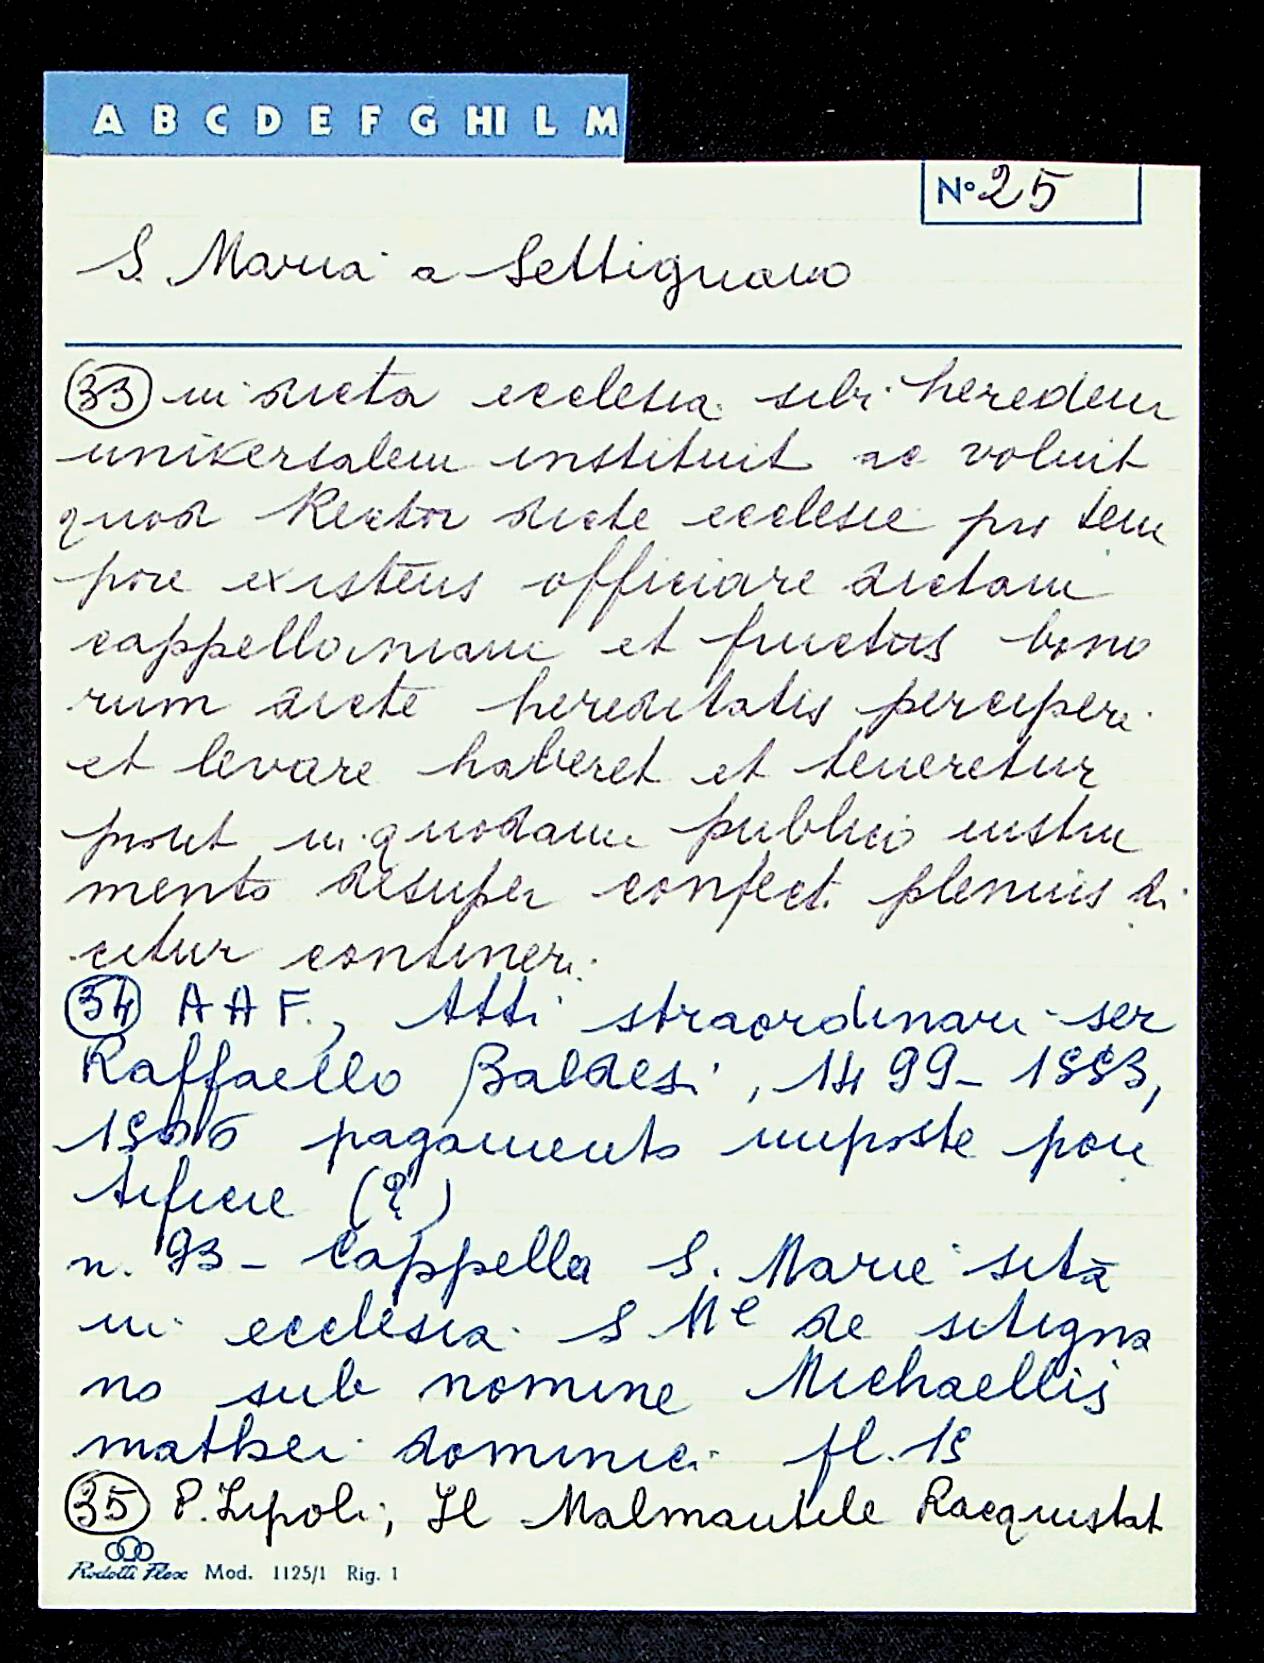 A B C D E F G HI L M
N° 25
S. Maria a Settignano
(33) in dicta ecclesia sibi heredem
universalem instituit ac voluit
quod Rector dicte ecclesie pro tem
pore existens officiare dictam
cappellaniam et fructus bono
rum dicte hereditatis percipere
et levare haberet et teneretur
prout in quodam publico instru
mento desuper confect. plenius di
citur contineri.
(34) A A F., Atti straordinari ser
Raffaello Baldesi, 1499-1553,
pagamento imposte pon
tificie (?)
n. 93 - Cappella S. Marie sita
in ecclesia S Me de setigna
no sub nomine Michaellis
mathei dominici fl. 15
(35) P. Lipoli; Il Malmantile Racquistat
Rodotti Flex Mod. 1125/1 Rig. 1